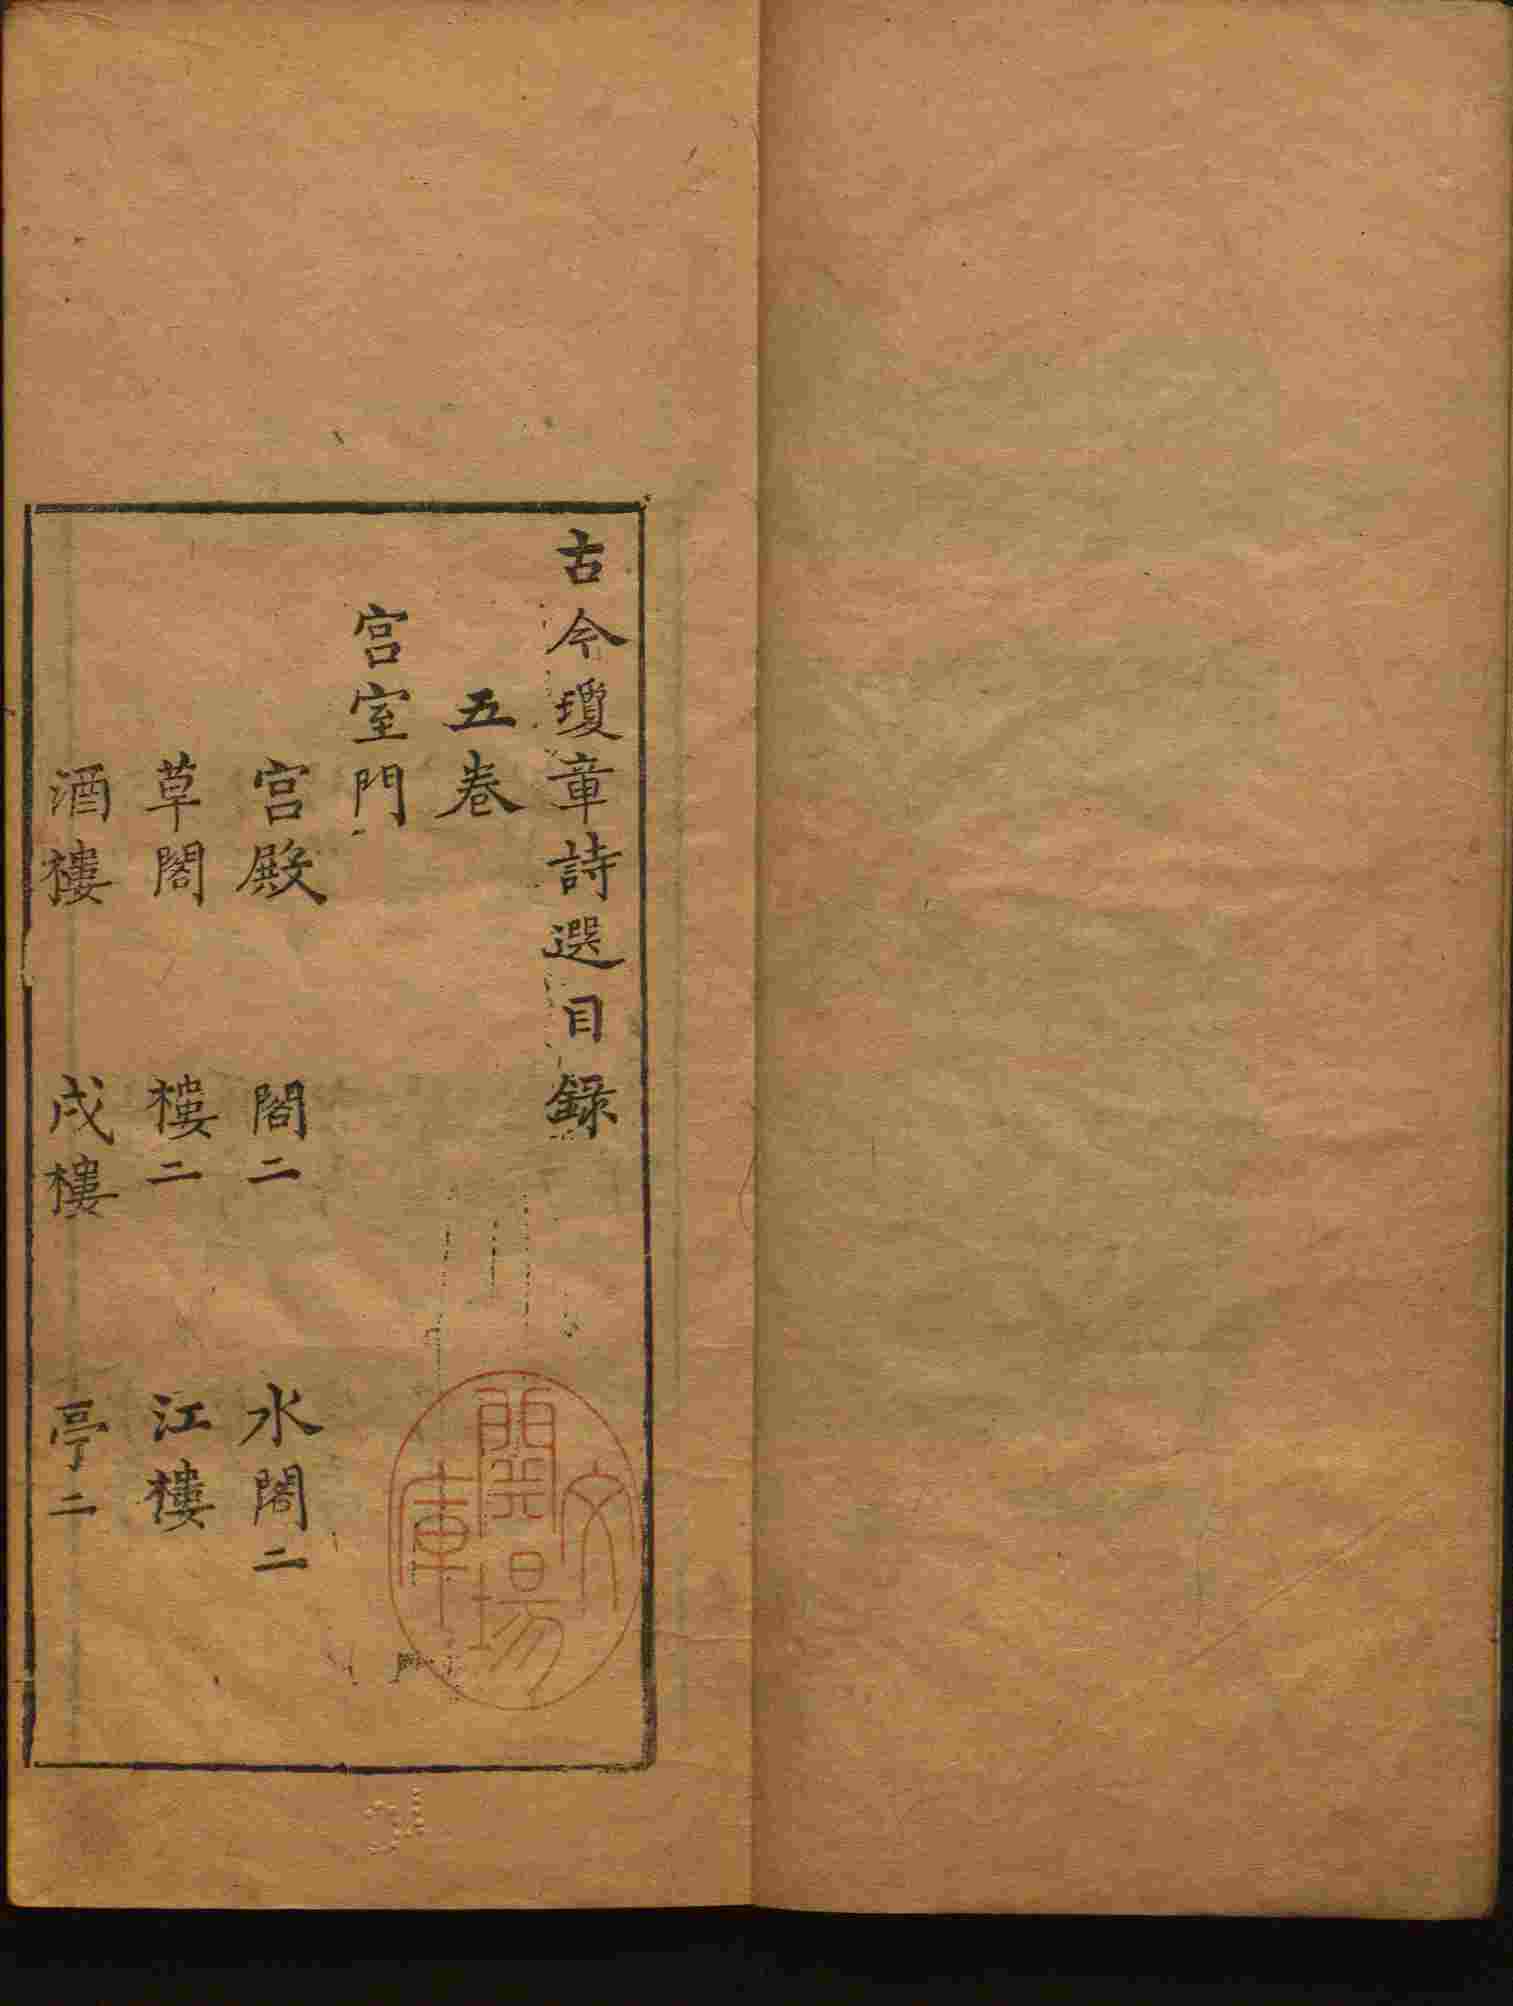 古今瓊章詩選目錄
五卷
宮室門
宮殿　閣二　水閣二
草閣　樓二　江樓
酒樓　戍樓　亭二
文
閒場
庫